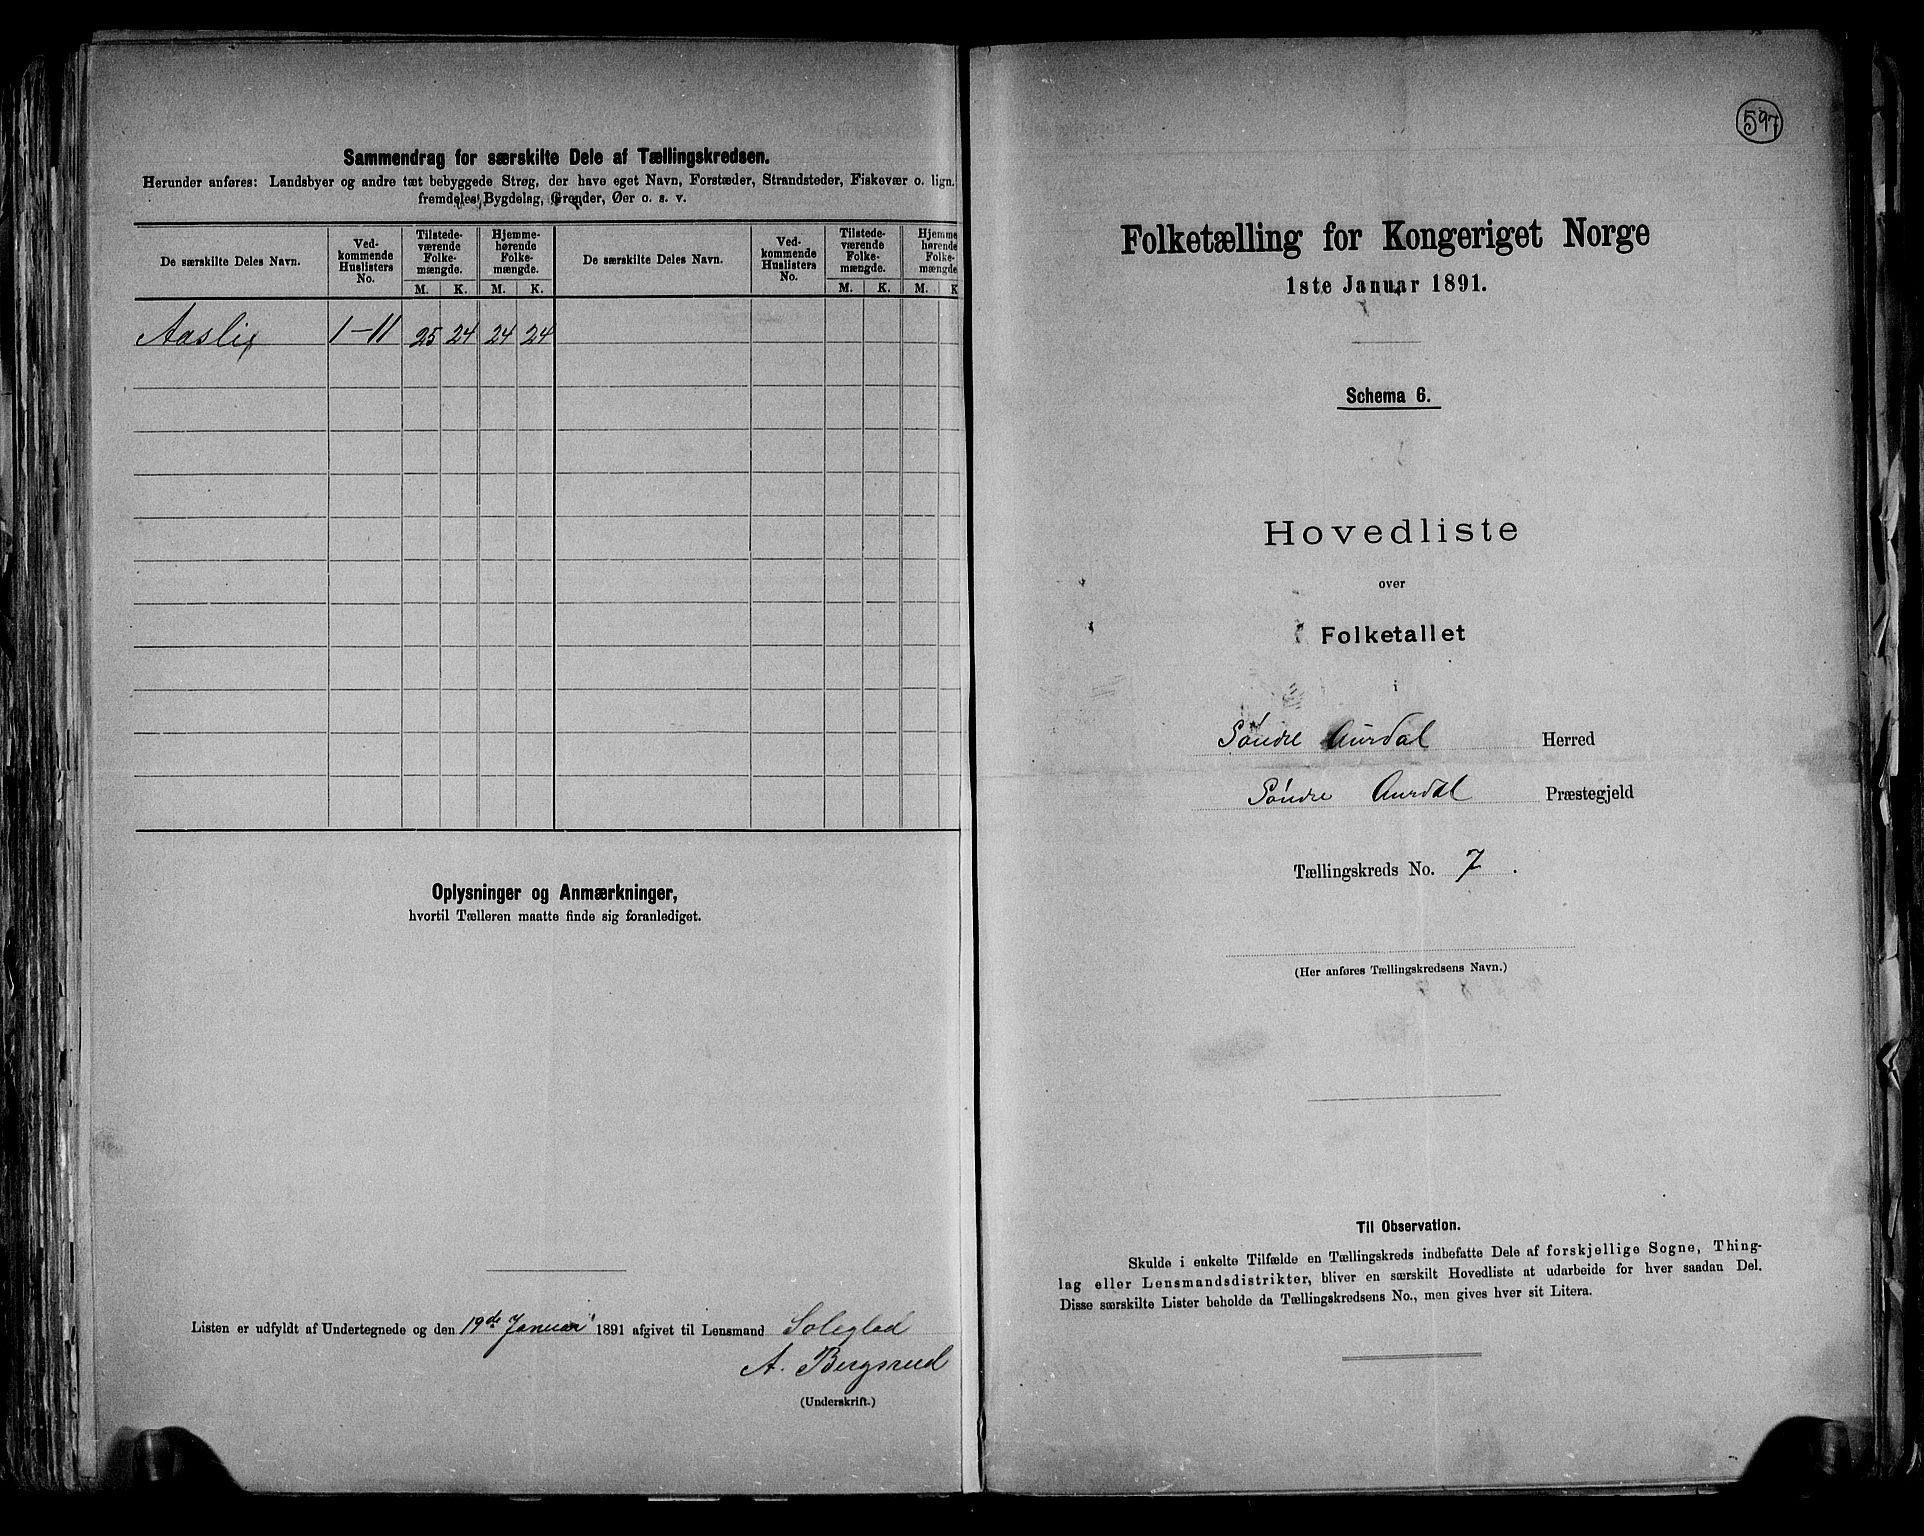 Sammendrag for særskilte Dele af Tællingskredsen.
Herunder anføres: Landsbyer og andre tæt bebyggede Strøg, der have eget Navn, Forstæder, Strandsteder, Fiskevær o. lign.,
fremdeles Bygdelag, Grender, Øer o. s. v.
De særskilte Deles Navn.
Ved-
kommende
Huslisters
No.
Tilstede-
værende
Folke-
mængde.
Hjemme-
hørende
Folke-
mængde.
De særskilte Deles Navn.
Ved-
kommende
Huslisters
No.
Tilstede-
værende
Folke-
mængde.
Hjemme
hørende
Folke-
mængde
M. K. M. K. M. K. M. K
Aasli 1-11 25 24 24 24
Oplysninger og Anmærkninger,
hvortil Tælleren maatte finde sig foranlediget.
Listen er udfyldt af Undertegnede og den 19de Januar 1891 afgivet til Lensmand Soleglad
A. Bergsrud
(Underskrift.)
597
Folketælling for Kongeriget Norge
1ste Januar 1891.
Schema 6.
Hovedliste
over
Folketallet
i
Søndre Aurdal Herred
Søndre Aurdal Præstegjeld
Tællingskreds No. 7.
(Her anføres Tællingskredsens Navn.)
Til Observation.
Skulde i enkelte Tilfælde en Tællingskreds indbefatte Dele af forskjellige Sogne, Thing-
lag eller Lensmandsdistrikter, bliver en særskilt Hovedliste at udarbeide for hver saadan Del.
Disse særskilte Lister beholde da Tællingskredsens No., men gives hver sit Litera.